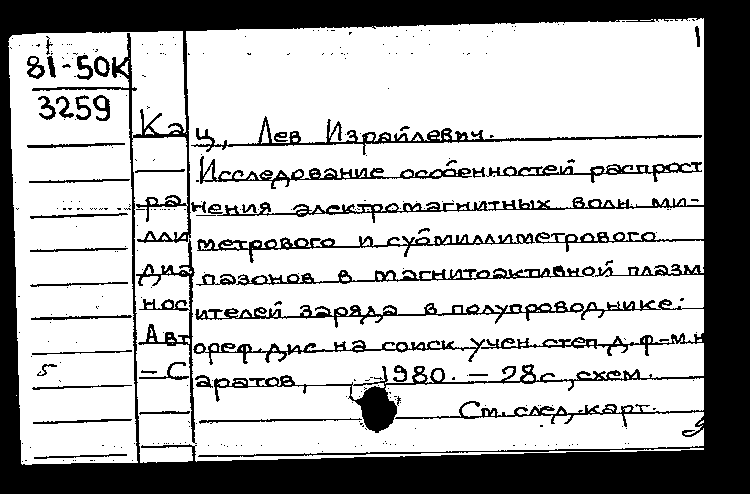 1
81-50К
3259
Кац, Лев Израйлевич.
Исследование особенностей распрост
ранения электромагнитных волн ми-
ллиметрового и субмиллиметрового
диапазонов в магнитоактивной плазм
носителей заряда в полупроводнике:
Автореф. дис на соиск учен. степ. д. ф-м. н
5 – Саратов, 1980. – 28с, схем.
См. след. карт.